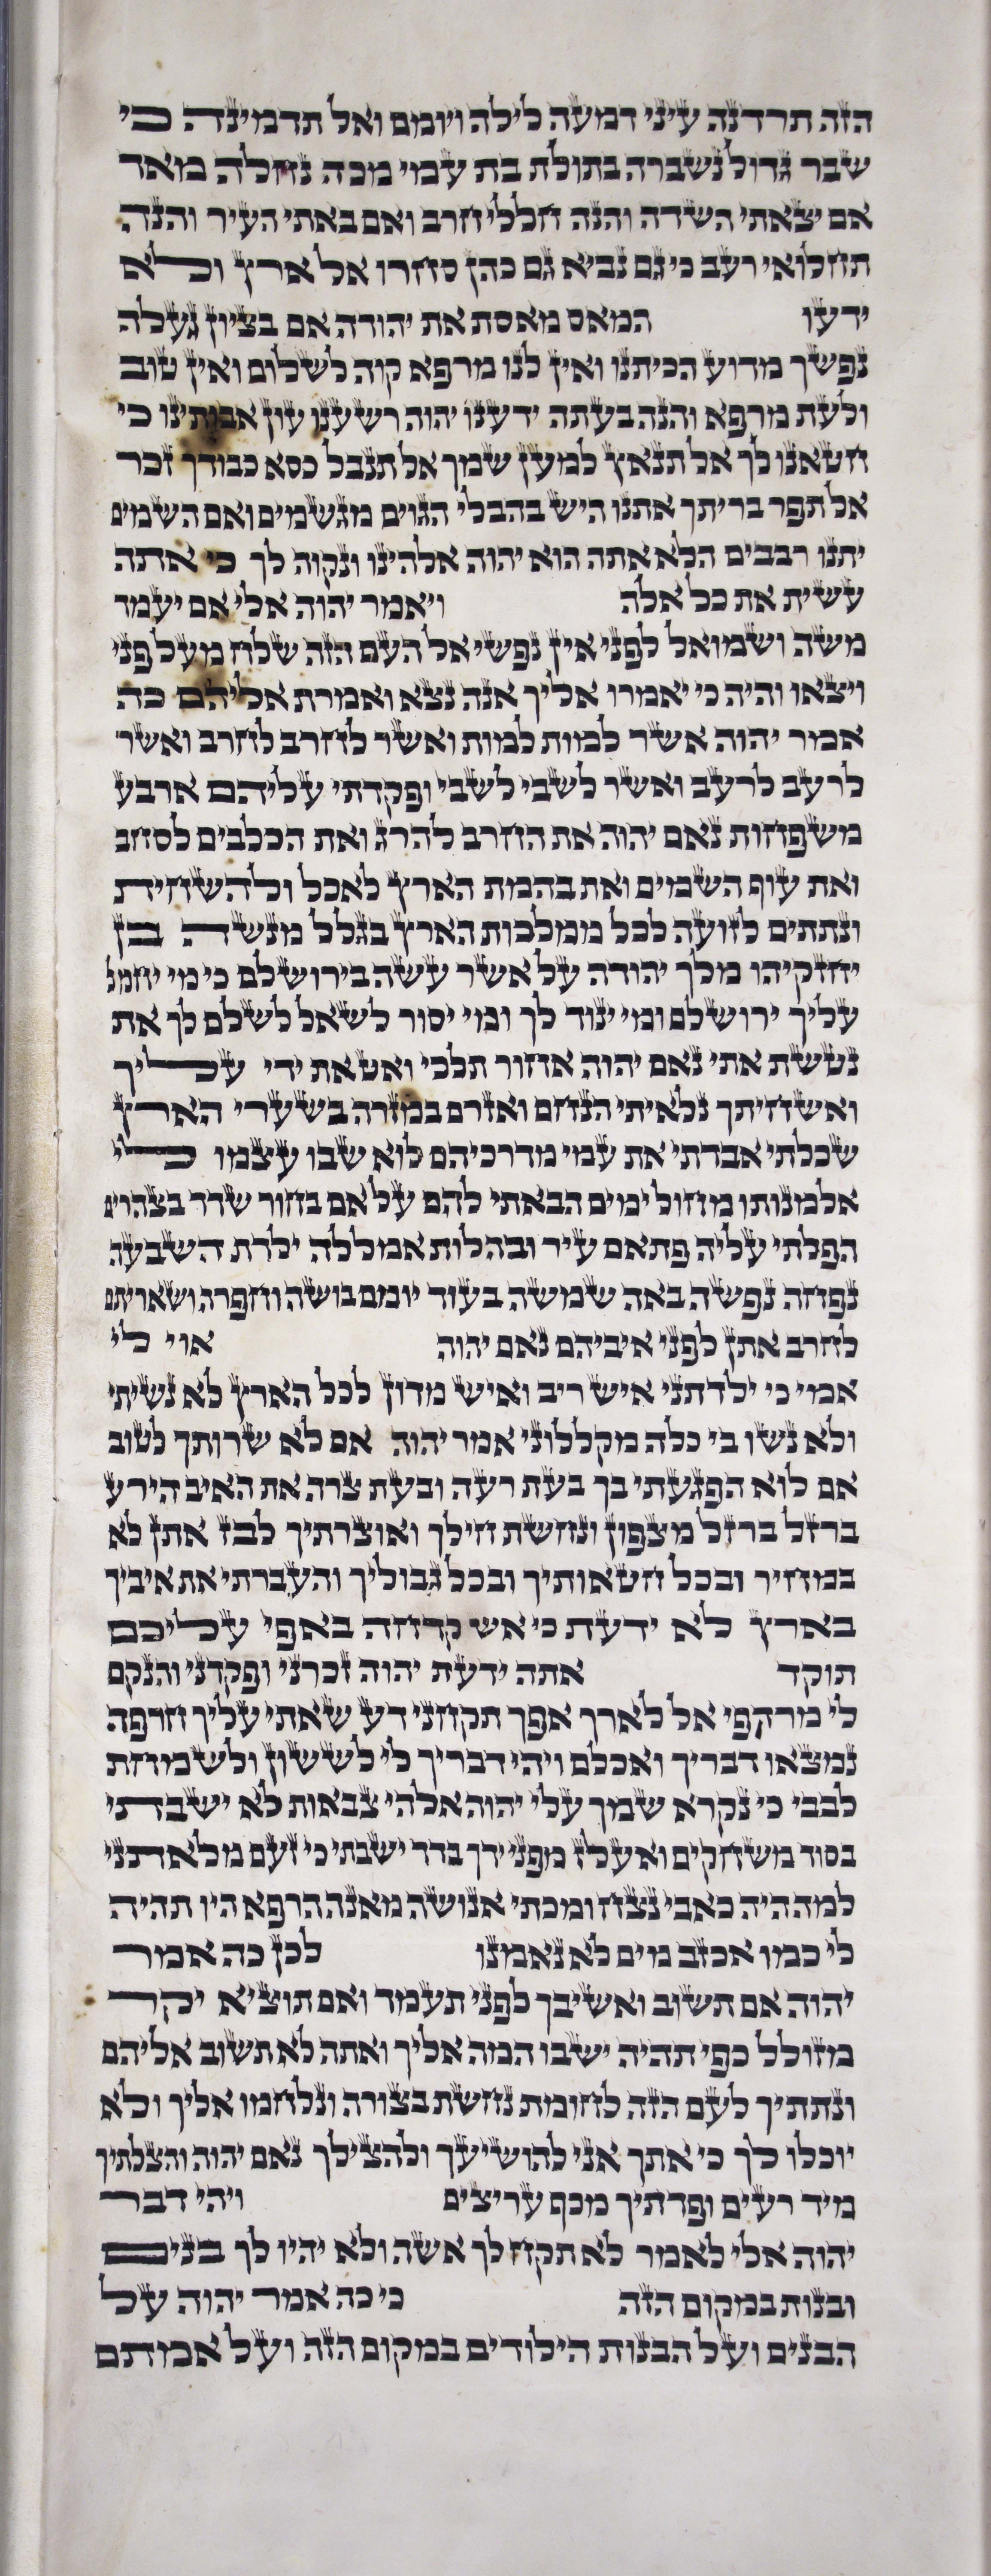 הזה תרדנה עיני דמעה לילה ויומם ואל תדמינה כי
שבר גדול נשברה בתולת בת עמי מכה נחלה מאד
אם יצאתי השדה והנה חללי חרב ואם באתי העיר והנה
תחלואי רעב כי גם נביא גם כהן סחרו אל ארץ ולא
ידעו המאס מאסת את יהודה אם בציון געלה
נפשך מדוע הכיתנו ואין לנו מרפא קוה לשלום ואין טוב
ולעת מרפא והנה בעתה ידענו יהוה רשענו עון אבותינו כי
חטאנו לך אל תנאץ למען שמך אל תנבל כסא כבודך זכר
אל תפר בריתך אתנו היש בהבלי הגוים מגשמים ואם השמים
יתנו רבבים הלא אתה הוא יהוה אלהינו ונקוה לך כי אתה
עשית את כל אלה ויאמר יהוה אלי אם יעמד
משה ושמואל לפני אין נפשי אל העם הזה שלח מעל פני
ויצאו והיה כי יאמרו אליך אנה נצא ואמרת אליהם כה
אמר יהוה אשר למות למות ואשר לחרב לחרב ואשר
לרעב לרעב ואשר לשבי לשבי ופקדתי עליהם ארבע
משפחות נאם יהוה את החרב להרג ואת הכלבים לסחב
ואת עוף השמים ואת בהמת הארץ לאכל ולהשחית
ונתתים לזועה לכל ממלכות הארץ בגלל מנשה בן
יחזקיהו מלך יהודה על אשר עשה בירושלם כי מי יחמל
עליך ירושלם ומי ינוד לך ומי יסור לשאל לשלם לך את
נטשת אתי נאם יהוה אחור תלכי ואט את ידי עליך
ואשחיתך נלאיתי הנחם ואזרם במזרה בשערי הארץ
שכלתי אבדתי את עמי מדרכיהם לוא שבו עצמו לי
אלמנותו מחול ימים הבאתי להם על אם בחור שדד בצהרים
הפלתי עליה פתאם עיר ובהלות אמללה ילדת השבעה
נפחה נפשה באה שמשה בעוד יומם בושה וחפרה ושאריתם
לחרב אתן לפני איביהם נאם יהוה אוי לי
אמי כי ילדתני איש ריב ואיש מדון לכל הארץ לא נשיתי
ולא נשו בי כלה מקללוני אמר יהוה אם לא שרותך לטוב
אם לוא הפגעתי בך בעת רעה ובעת צרה את האיב הירע
ברזל ברזל מצפון ונחשת חילך ואוצרתיך לבז אתן לא
במחיר ובכל חטאותיך ובכל גבוליך והעברתי את איביך
בארץ לא ידעת כי אש קדחה באפי עליכם
תוקד אתה ידעת יהוה זכרני ופקדני והנקם
לי מרדפי אל לארך אפך תקחני דע שאתי עליך חרפה
נמצאו דבריך ואכלם ויהי דבריך לי לששון ולשמחת
לבבי כי נקרא שמך עלי יהוה אלהי צבאות לא ישבתי
בסוד משחקים ואעלז מפני ידך בדד ישבתי כי זעם מלאתני
למה היה כאבי נצח ומכתי אנושה מאנה הרפא היו תהיה
לי כמו אכזב מים לא נאמנו לכן כה אמר
יהוה אם תשוב ואשיבך לפני תעמד ואם תוציא יקר
מזולל כפי תהיה ישבו המה אליך ואתה לא תשוב אליהם
ונתתיך לעם הזה לחומת נחשת בצורה ונלחמו אליך ולא
יוכלו לך כי אתך אני להושיעך ולהצילך נאם יהוה והצלתיך
מיד רעים ופדתיך מכף עריצים ויהי דבר
יהוה אלי לאמר לא תקח לך אשה ולא יהיו לך בנים
ובנות במקום הזה כי כה אמר יהוה על
הבנים ועל הבנות הילודים במקום הזה ועל אמתם